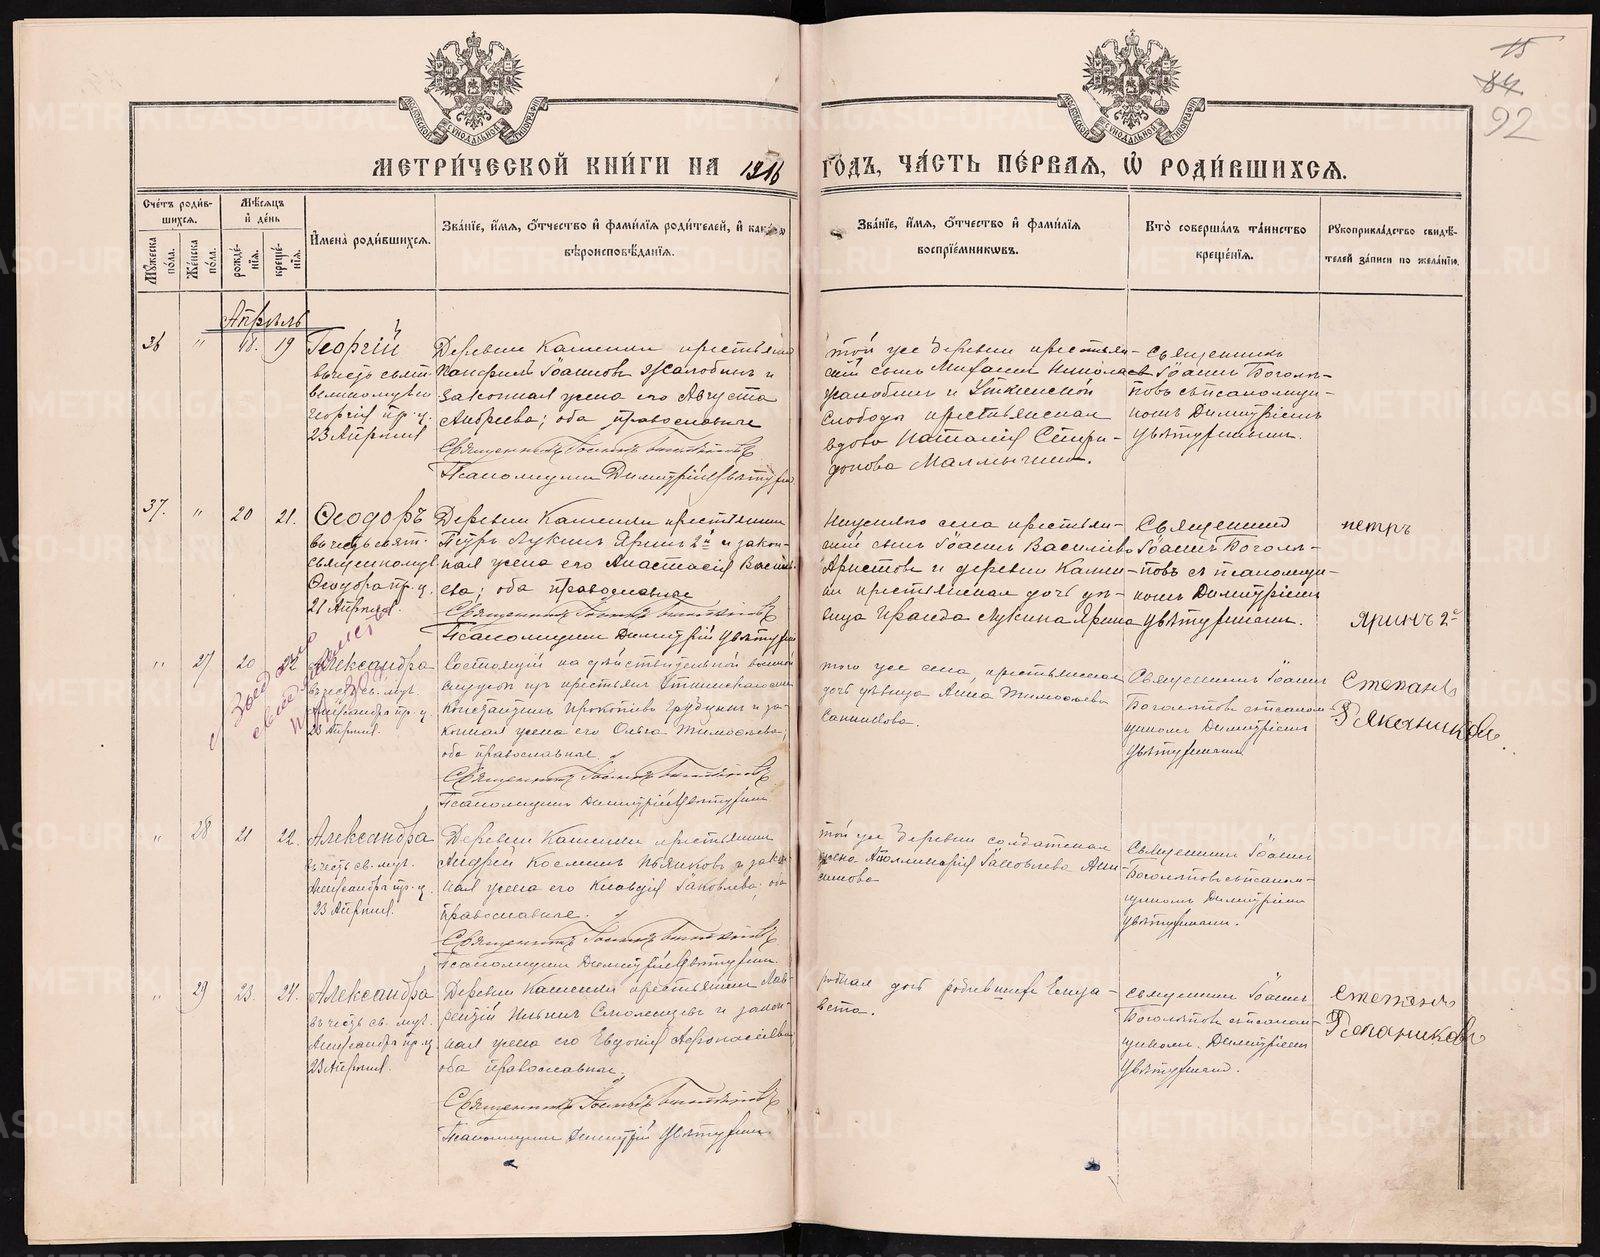 15
84
92
МЕТРИ́ЧЕСКОЙ КНИ́ГИ НА 1916 ГО́ДЪ, ЧА́СТЬ ПЕ́РВАЯ, Ѡ РОДИ́ВШИХСЯ.
Сче́тъ роди́в-
шихся.
Му́жеска по́ла.
Же́нска по́ла.
Мѣ́сяцъ
и де́нь
рожде́-
нія.
креще́-
нія.
Имена̀ роди́вшихся.
Зва́ніе, и́мя, о́тчество и фами́лія роди́телей, и како́го
вѣроисповѣ́данія.
Зва́ніе, и́мя, о́тчество и фами́лія
воспріе́мниковъ.
Кто̀ соверша́лъ та́инство
креще́нія.
Рукоприкла́дство свидѣ́-
телей за́писи по жела́нію.
Апрѣль
36 " 18. 19 Георгій
въ честь свят.
великомучен.
Георгія пр. ч.
23 Апрѣля
Деревни Каменки крестьянинъ
Памфилъ Іоанновъ Жалобинъ и
законная жена его Августа
Андреева; оба православные
Священникъ Іоаннъ Боголѣповъ
Псаломщикъ Димитрій Цвѣтухинъ
той же деревни крестьян-
скій сынъ Михаилъ Николаевъ
Жалобинъ и Уткинской
слободы крестьянская
вдова Наталія Спири-
донова Малмыгина.
Священникъ
Іоаннъ Боголѣ-
повъ съ псаломщи-
комъ Димитріемъ
Цвѣтухинымъ.
37. " 20 21. Ѳеодоръ
въ честь свят.
священномуч.
Ѳеодора пр. ч.
21 Апрѣля.
Деревни Каменки крестьянинъ
Петръ Лукинъ Яринъ 2й и закон-
ная жена его Анастасія Василь-
ева; оба православные
Священникъ Іоаннъ Боголѣповъ
Псаломщикъ Димитрій Цвѣтухинъ
села крестьян-
скій сынъ Іоаннъ Василіевъ
Аристовъ и деревни Камен-
ки крестьянская дочь дѣ-
вица Ираида Лукина Ярина
Священникъ
Іоаннъ Боголѣ-
повъ съ псаломщи-
комъ Димитріемъ
Цвѣтухинымъ.
петръ
Яринъ 2й
" 27 20 22 Александра
въ честь св. муч.
Александры пр. ч.
23 Апрѣля.
Состоящій на дѣйствительной военной
службѣ изъ крестьянъ Уткинскаго села
Константинъ Прокопіевъ и за-
конная жена его Ольга Тимоѳеева;
оба православные
Священникъ Іоаннъ Боголѣповъ
Псаломщикъ Димитрій Цвѣтухинъ
того же села, крестьянская
дочь дѣвица Анна Тимоѳеева
Санникова.
Священникъ Іоаннъ
Боголѣповъ съ псалом-
щикомъ Димитріемъ
Цвѣтухинымъ
Степанъ
" 28 21 22. Александра
въ честь св. муч.
Александры пр. ч.
23 Апрѣля.
Деревни Каменки крестьянинъ
Андрей Косминъ Пьянковъ и закон-
ная жена его Клавдія Іаковлева; оба
православные.
Священникъ Іоаннъ Боголѣповъ
Псаломщикъ Димитрій Цвѣтухинъ.
той же деревни солдатская
жена Аполлинарія Іаковлева Ани-
симова
Священникъ Іоаннъ
Боголѣповъ съ псалом-
щикомъ Димитріемъ
Цвѣтухинымъ.
" 29 23. 24. Александра
въ честь св. муч.
Александры пр. ч.
23 Апрѣля.
Деревни Каменки крестьянинъ Лав-
рентій Ильинъ и закон-
ная жена его Евдокія Аѳанасіева
оба православные.
Священникъ Іоаннъ Боголѣповъ
Псаломщикъ Димитрій Цвѣтухинъ
родная дочь родившей Елиза-
вета.
Священникъ Іоаннъ
Боголѣповъ съ псалом-
щикомъ Димитріемъ
Цвѣтухинымъ.
степанъ